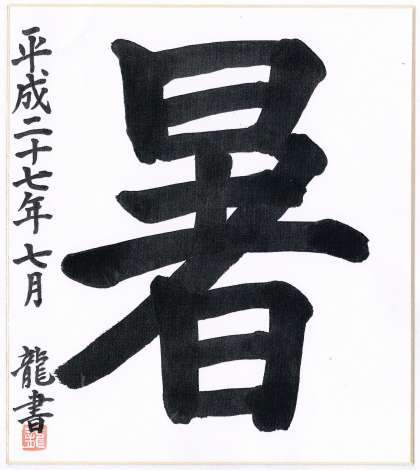 暑
平成二十七年七月
龍書